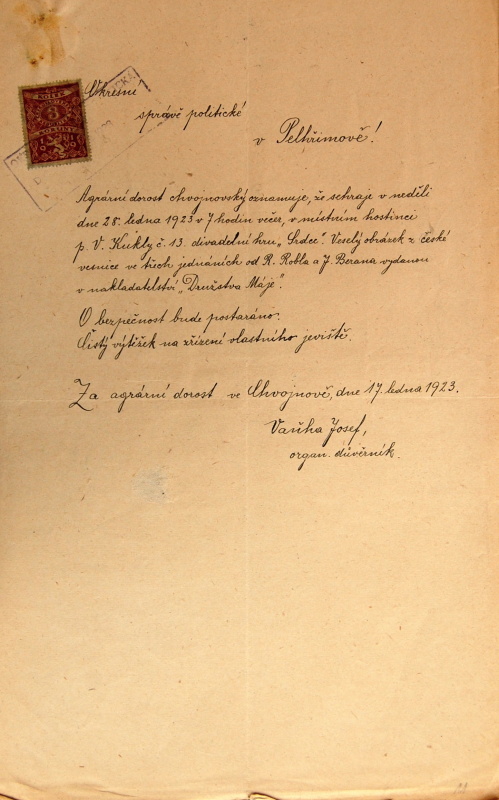 KOLEK
3
KORUNY
Okresní
správě politické
v Pelhřimově!
Agrární dorost chvojnovský oznamuje, že sehraje v neděli
dne 28. ledna 1923 v 7 hodin večer, v místním hostinci
p. V. Kukly č. 13. divadelní hru „Srdce“. Veselý obrázek z české
vesnice ve třech jednáních od R. Robla a J. Berana vydanou
v nakladatelství „Družstva Máje“.
O bezpečnost bude postaráno.
Čistý výtěžek na zřízení vlastního jeviště.
Za agrární dorost ve Chvojnově, dne 17. ledna 1923.
Vaňha Josef,
organ. důvěrník.